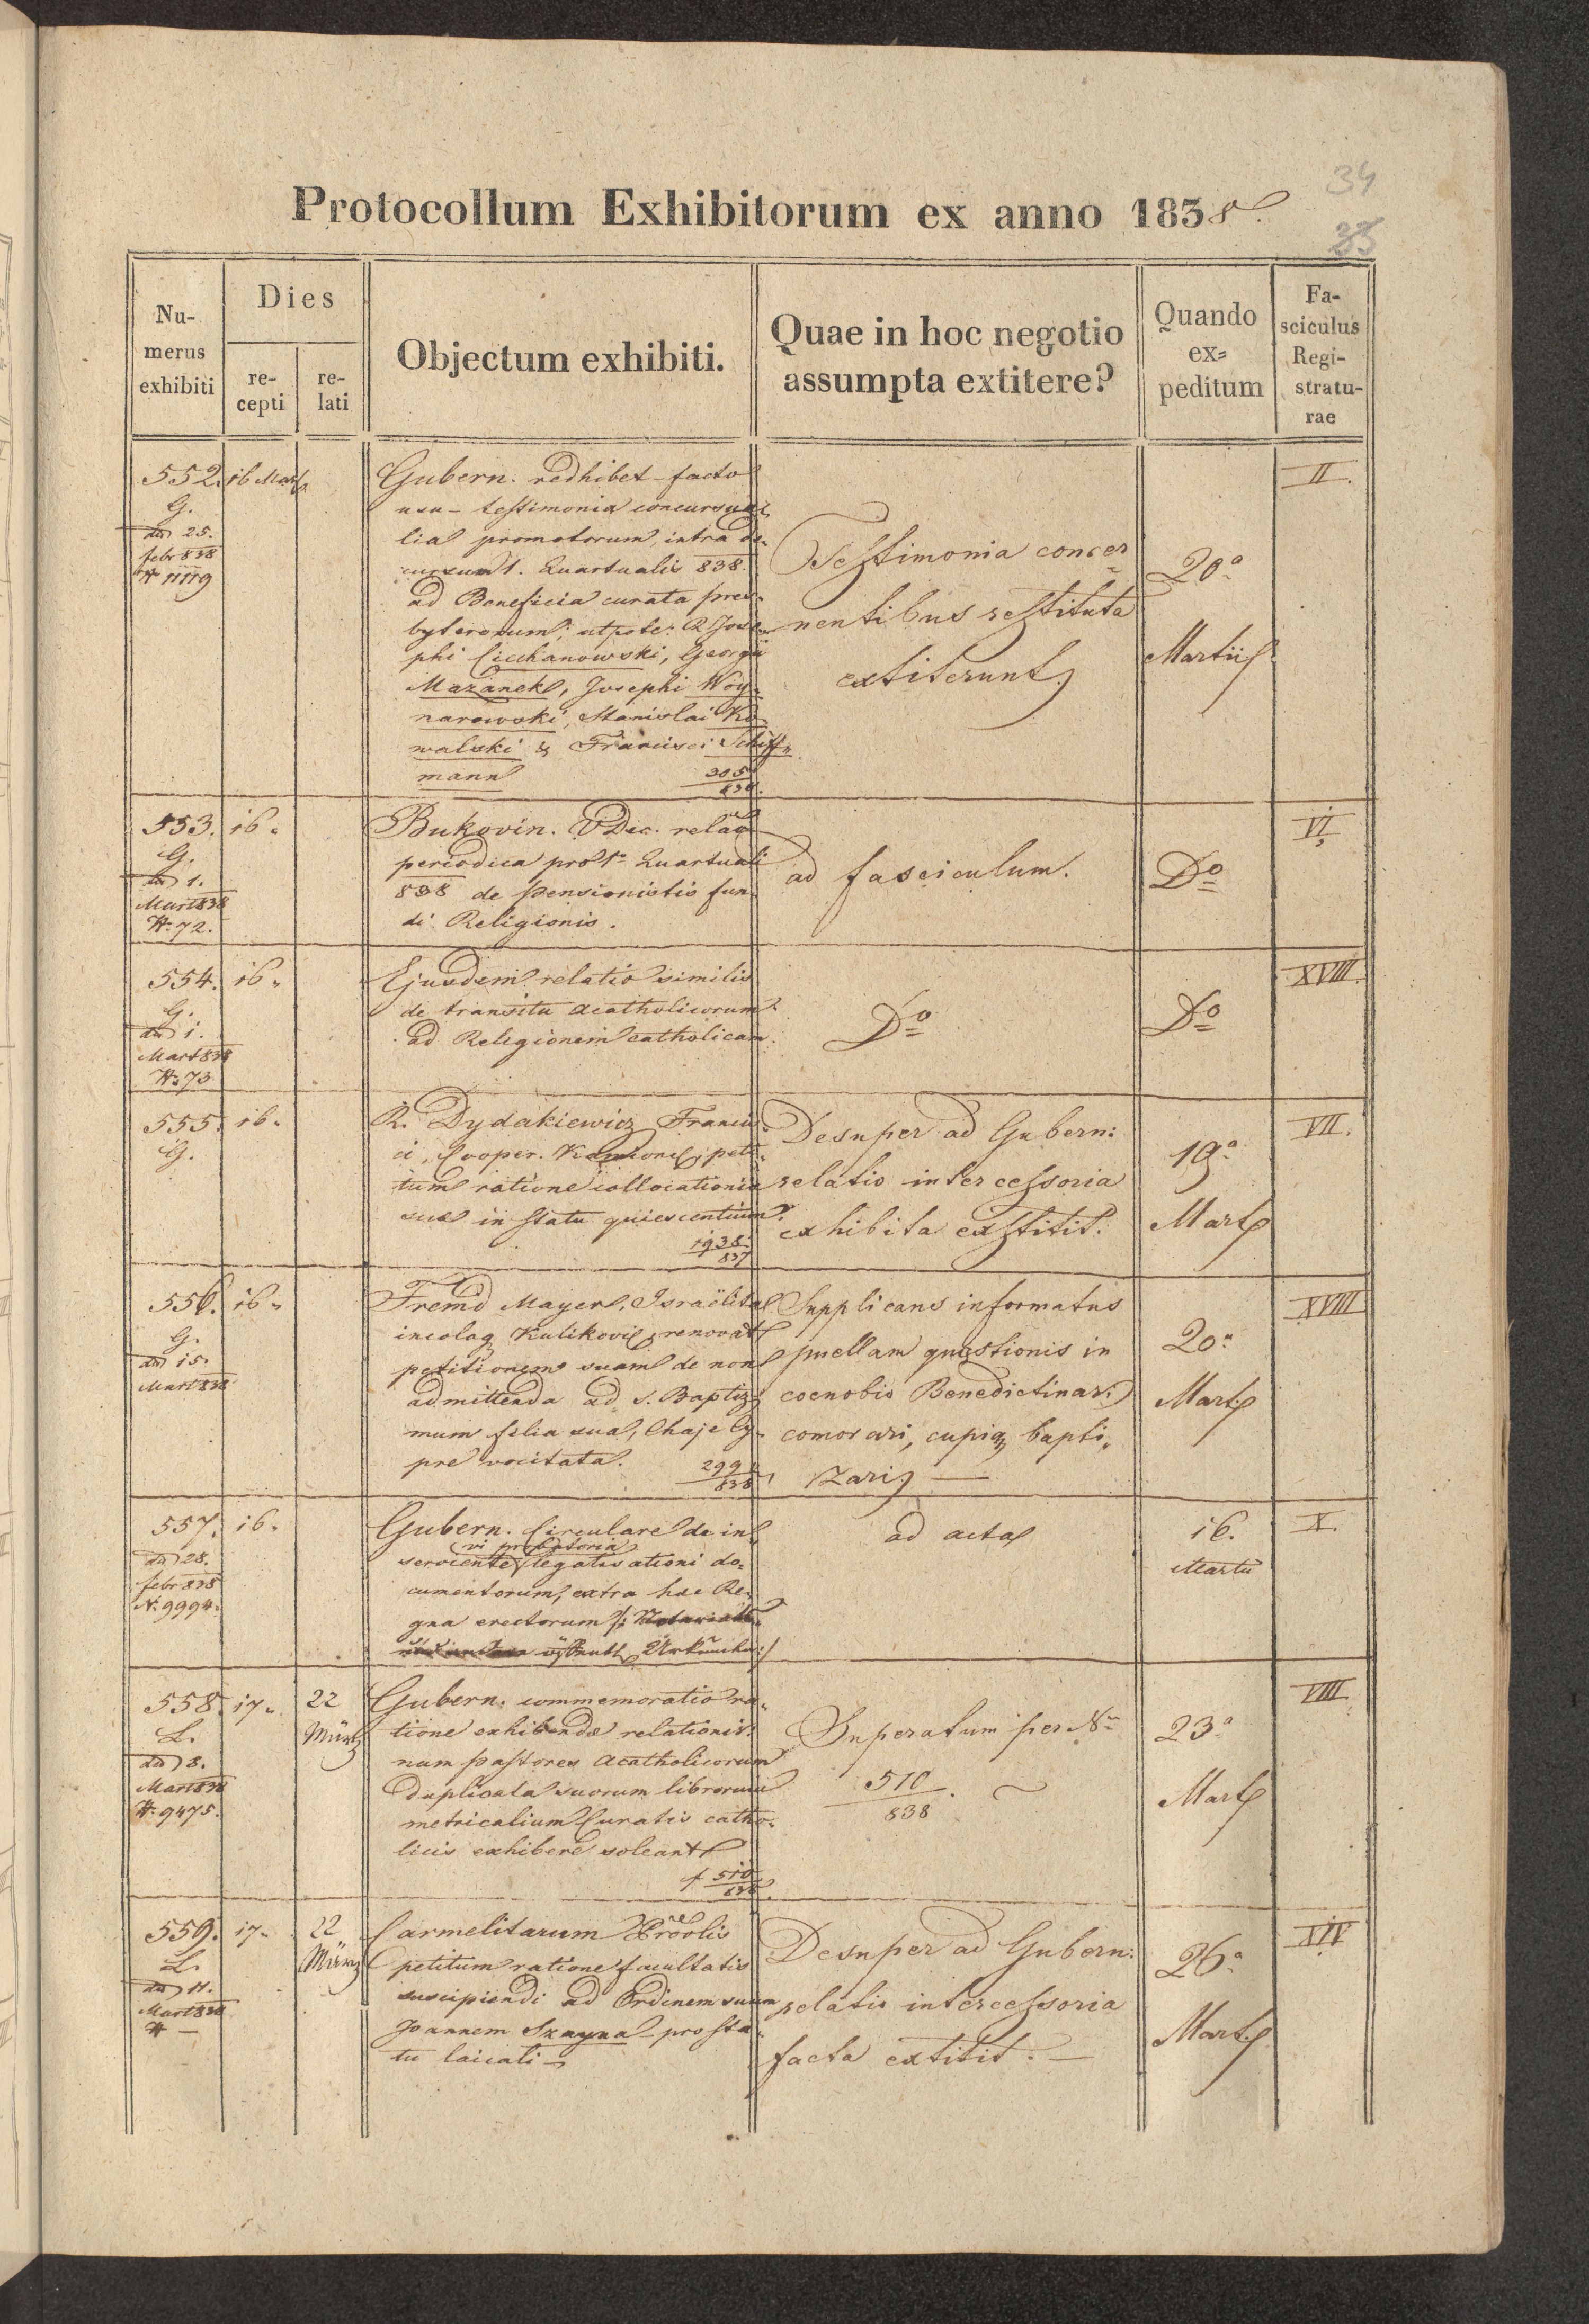 34
33
Protocollum Exhibitorum ex anno 1838.
Nu-
merus
exhibiti
Dies
re-
cepti
re-
lati
Objectum exhibiti.
Quae in hoc negotio
assumpta extitere?
Quando
ex=
peditum
Fa-
sciculus
Regi-
stratu-
rae
552.
G.
dd 25.
febr 838
N 11119
16 Mart
Gubern. redhibet facto
usu - testimonia concursua
lia promotorum, intra de-
cursum 1. Quartualis 838.
ad Beneficia curata pres-
byterorum; utpote: R. Jose-
phi Ciechanowski, Georgii
Mazanek, Josephi Woy-
narowski, Stanislai Ko-
walski & Francisci Schiff-
mann
305
838.
Testimonia concer
nentibus restituta
extiterunt
20a
Martii
II.
553.
G.
dd 1.
Mart 838
N. 72.
16.
Bukovin. VDec. relao
periodica pro 1o Quartuali
838 de pensionistis fun-
di Religionis.
ad fasciculum.
Do
VI.
554.
G.
dd 1.
Mart 838
N. 73
16.
Ejusdem relatio similis
de transitu acatholicorum
ad Religionem catholicam.
Do
Do
XVIII.
555.
G.
16.
R. Dydakiewicz Francis-
ci, Cooper. petitum ratione collocationis
suae in statu quiescentium.
1938.
837
Desuper ad Gubern:
relatio intercessoria
exhibita exstitit.
19a
Mart
VII.
556.
G.
dd 15.
Mart 838
16.
Fremd Mayer, Israëlita
incolaq Kulikoviae renovat
petitionem suam de non
admittenda ad s. Baptiz-
mum filia sua, Chaje Cy-
pre vocitata.
299
838
Supplicans informatus
puellam quaestionis in
coenobio Benedictinar:
comorari, cupiq bapti-
zari. —
20a
Mart
XVIII
557.
dd 28.
febr 838
N. 9994.
16.
Gubern. Circulare de in-
vi probatoria
serviente legalisationi do-
cumentorum, extra hae Re-
gna erectorum /:
öffentl. Urkunden:/
ad acta
16.
Martii
X.
558.
L.
dd 8.
Mart 838
N. 9475.
17.
22
März
Gubern. commemoratio ra-
tione exhibendae relationis:
num pastores acatholicorum
duplicata suorum librorum
metricalium Curatis catho-
licis exhibere soleant
f 510
838
Superatum per No
510
838.
23a
Mart
VIII.
559.
L.
dd 11.
Mart 838
N —
17.
22
März
Carmelitarum
petitum ratione facultatis
suscipiendi ad Ordinem suum
Joannem Szayna pro sta-
tu laicali
Desuper ad Gubern:
relatio intercessoria
facta extitit. —
26a
Mart
XIV